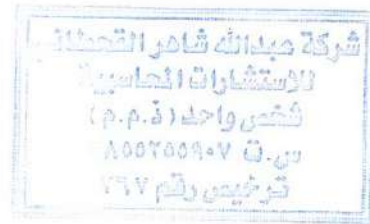 شركة عبدالله شاهر القحطاني
للاستشارات المحاسبية
شخص واحد (ذ.م.م)
س.ت ٨٥٥٢٥٥٩٠٧
ترخيص رقم